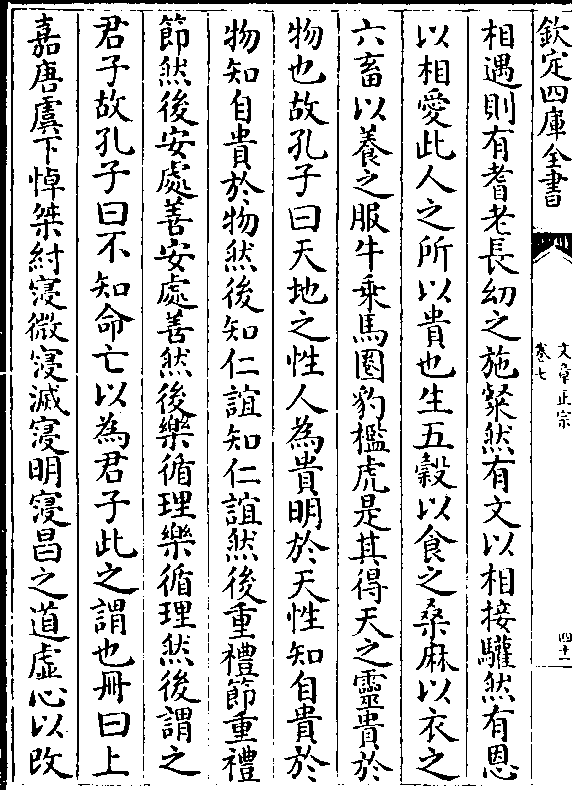 欽定四庫全書
文章正宗
卷七
四十二
相遇則有耆老長幼之施粲然有文以相接驩然有恩
以相愛此人之所以貴也生五榖以食之桑麻以衣之
六畜以養之服牛乘馬圈豹檻虎是其得天之靈貴於
物也故孔子曰天地之性人為貴明於天性知自貴於
物知自貴於物然後知仁誼知仁誼然後重禮節重禮
節然後安處善安處善然後樂循理樂循理然後謂之
君子故孔子曰不知命亡以為君子此之謂也冊曰上
嘉唐虞下悼桀紂寖微寖滅寖明寖昌之道虛心以改